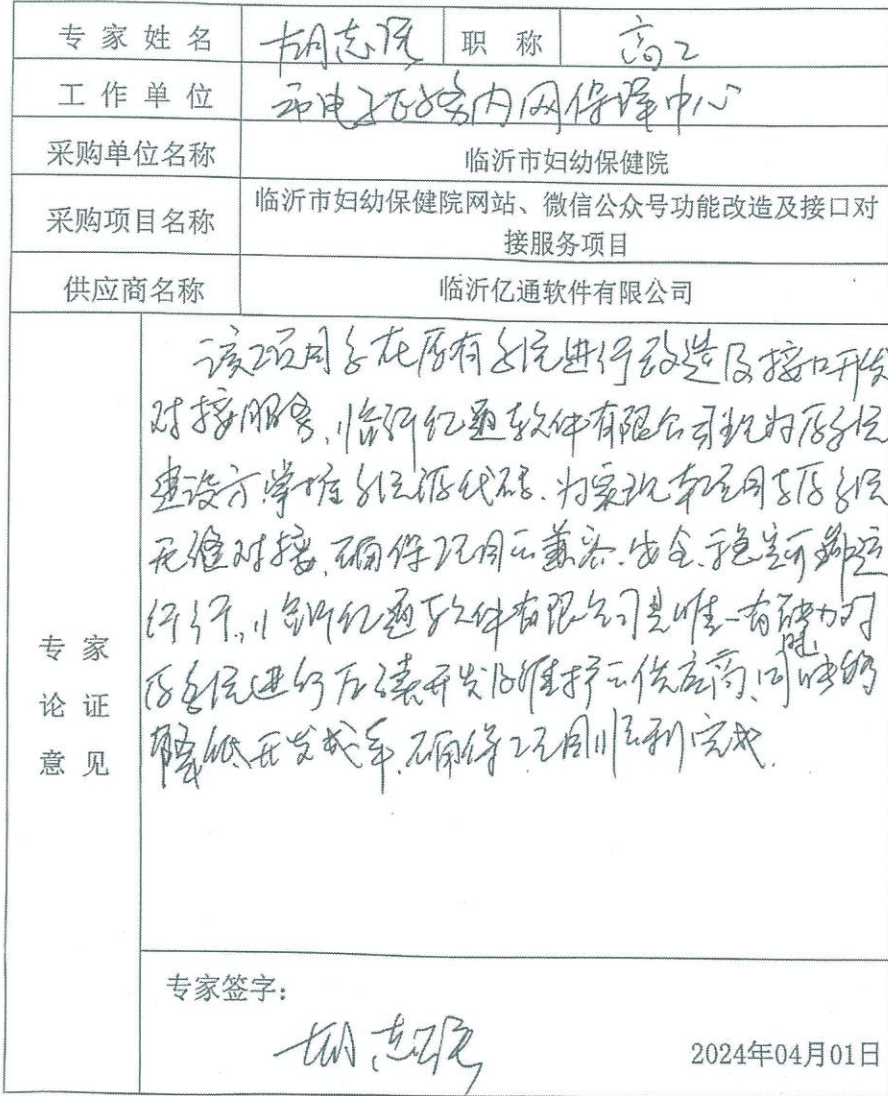 专家姓名 胡志强 职称 高工
工作单位 市电子政务内网保障中心
采购单位名称 临沂市妇幼保健院
采购项目名称 临沂市妇幼保健院网站、微信公众号功能改造及接口对
接服务项目
供应商名称 临沂亿通软件有限公司
专家
论证
意见
该项目系在原有系统进行改造及接口开发
对接服务,临沂亿通软件有限公司现为原系统
建设方,掌握系统源代码.为实现本项目与原系统
无缝对接,确保项目兼容.安全.稳定可靠运
行,临沂亿通软件有限公司是唯一有能力对
原系统进行后续开发及维护的供应商,同时能够
降低开发成本,确保项目顺利完成.
专家签字:
胡志强
2024年04月01日